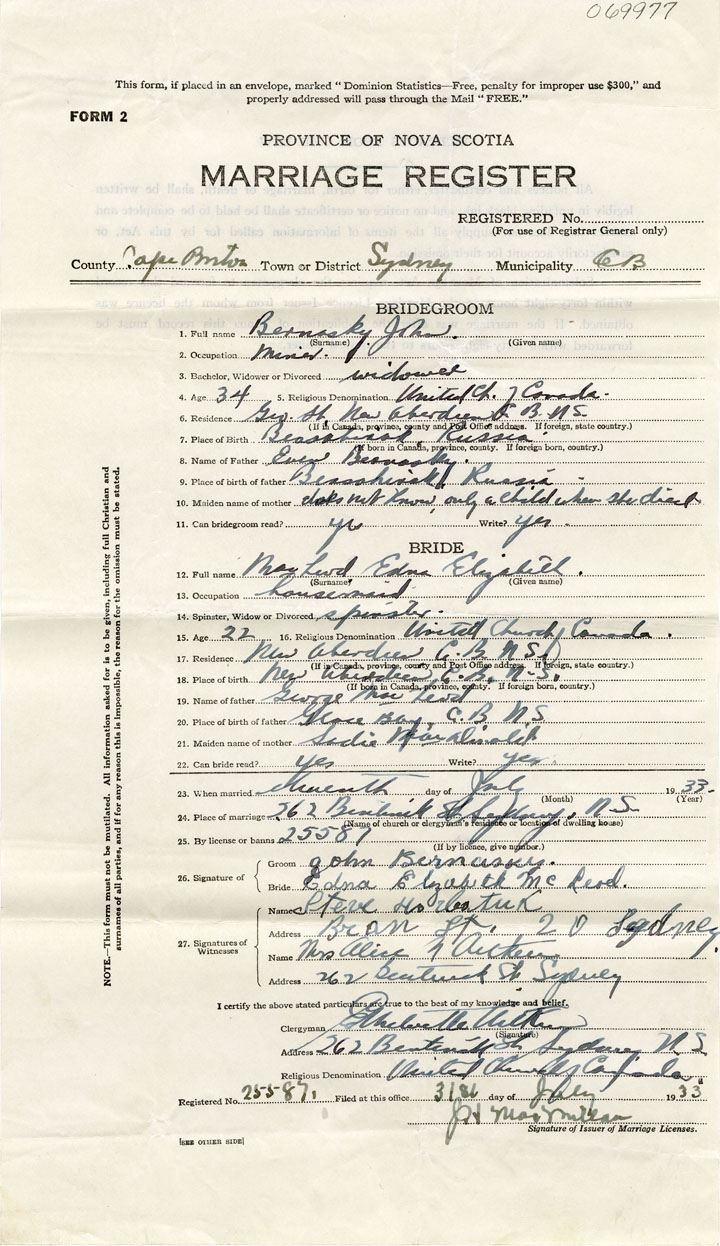 069977
This form, if placed in an envelope, marked “ Dominion Statistics—Free, penalty for improper use $300,” and
properly addressed will pass through the Mail “ FREE.”
FORM 2
PROVINCE OF NOVA SCOTIA
MARRIAGE REGISTER
REGISTERED No.
(For use of Registrar General only)
County Cape Breton Town or District Sydney Municipality C B
BRIDEGROOM
1. Full name Bernasky John.
(Surname) (Given name)
2. Occupation Miner.
3. Bachelor, Widower or Divorced widower
4. Age 34 5. Religious Denomination United Ch. of Canada.
6. Residence Geo. St. New Aberdeen C. B. N.S.
(If in Canada, province, county and Post Office address. If foreign, state country.)
7. Place of Birth Russia
(If born in Canada, province, county. If foreign born, country.)
8. Name of Father Bernasky.
9. Place of birth of father Russia
10. Maiden name of mother does not know, only a child when she died
11. Can bridegroom read? yes Write? yes
BRIDE
12. Full name MacLeod Edna Elizabeth.
(Surname) (Given name)
13. Occupation housemaid
14. Spinster, Widow or Divorced spinster.
15. Age 22 16. Religious Denomination United Church of Canada.
17. Residence New Aberdeen C. B. N.S.
(If in Canada, province, county and Post Office address. If foreign, state country.)
18. Place of birth New Aberdeen, C. B. N.S.
(If born in Canada, province, county. If foreign born, country.)
19. Name of father George MacLeod
20. Place of birth of father Glace Bay, C. B. N.S
21. Maiden name of mother Sadie MacDonald
22. Can bride read? yes Write? yes
23. When married day of July 1933
(Month) (Year)
24. Place of marriage 262 Bentinck St. Sydney, N.S.
(Name of church or clergyman's residence or location of dwelling house)
25. By license or banns 25587
(If by licence, give number.)
26. Signature of Groom John Bernasky.
Bride Edna Elizabeth Mc Leod.
27. Signatures of Witnesses
Name Steve
Address St. Sydney
Name Mrs Alice Aitken
Address 262 Bentinck St. Sydney
I certify the above stated particulars are true to the best of my knowledge and belief.
Clergyman
(Signature)
Address 262 Bentinck St. Sydney N.S.
Religious Denomination United Church of Canada
Registered No. 25587. Filed at this office 31st day of July 1933
J H MacMillan
Signature of Issuer of Marriage Licenses.
[SEE OTHER SIDE]
NOTE.—This form must not be mutilated. All information asked for is to be given, including full Christian and
surnames of all parties, and if for any reason this is impossible, the reason for the omission must be stated.